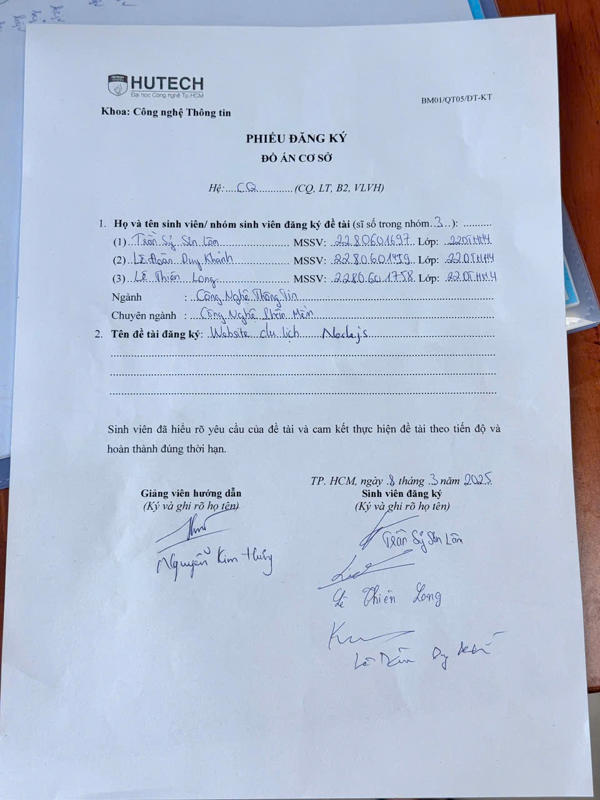 HUTECH
Đại học Công nghệ Tp.HCM
BM01/QT05/ĐT-KT
Khoa: Công nghệ Thông tin
PHIẾU ĐĂNG KÝ
ĐỒ ÁN CƠ SỞ
Hệ: CQ (CQ, LT, B2, VLVH)
1. Họ và tên sinh viên/ nhóm sinh viên đăng ký đề tài (sĩ số trong nhóm 3):
(1) Trần Sỹ Sên Lôn MSSV: 2280601697 Lớp: 22DTHH4
(2) Lê Đoàn Duy Khánh MSSV: 2280601459 Lớp: 22DTHH4
(3) Lê Thiên Long MSSV: 2280601758 Lớp: 22DTHH4
Ngành : Công Nghệ Thông Tin
Chuyên ngành : Công Nghệ Phần Mềm
2. Tên đề tài đăng ký: Website du lịch Nodejs
Sinh viên đã hiểu rõ yêu cầu của đề tài và cam kết thực hiện đề tài theo tiến độ và
hoàn thành đúng thời hạn.
TP. HCM, ngày 8 tháng 3 năm 2025
Giảng viên hướng dẫn Sinh viên đăng ký
(Ký và ghi rõ họ tên) (Ký và ghi rõ họ tên)
Trần Sỹ Sên Lôn
Nguyễn Kim Hưng
Lê Thiên Long
Lê Duy